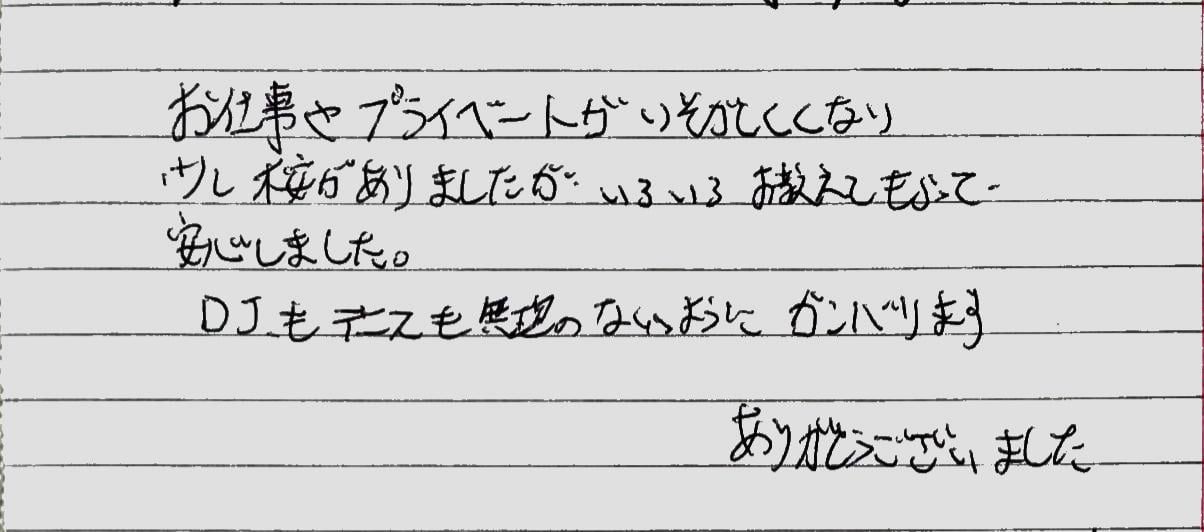 お仕事やプライベートがいそがしくなり
少し不安がありましたが いろいろお教えてもらって
安心しました。
DJもテニスも無理のないように ガンバリます
ありがとうございました